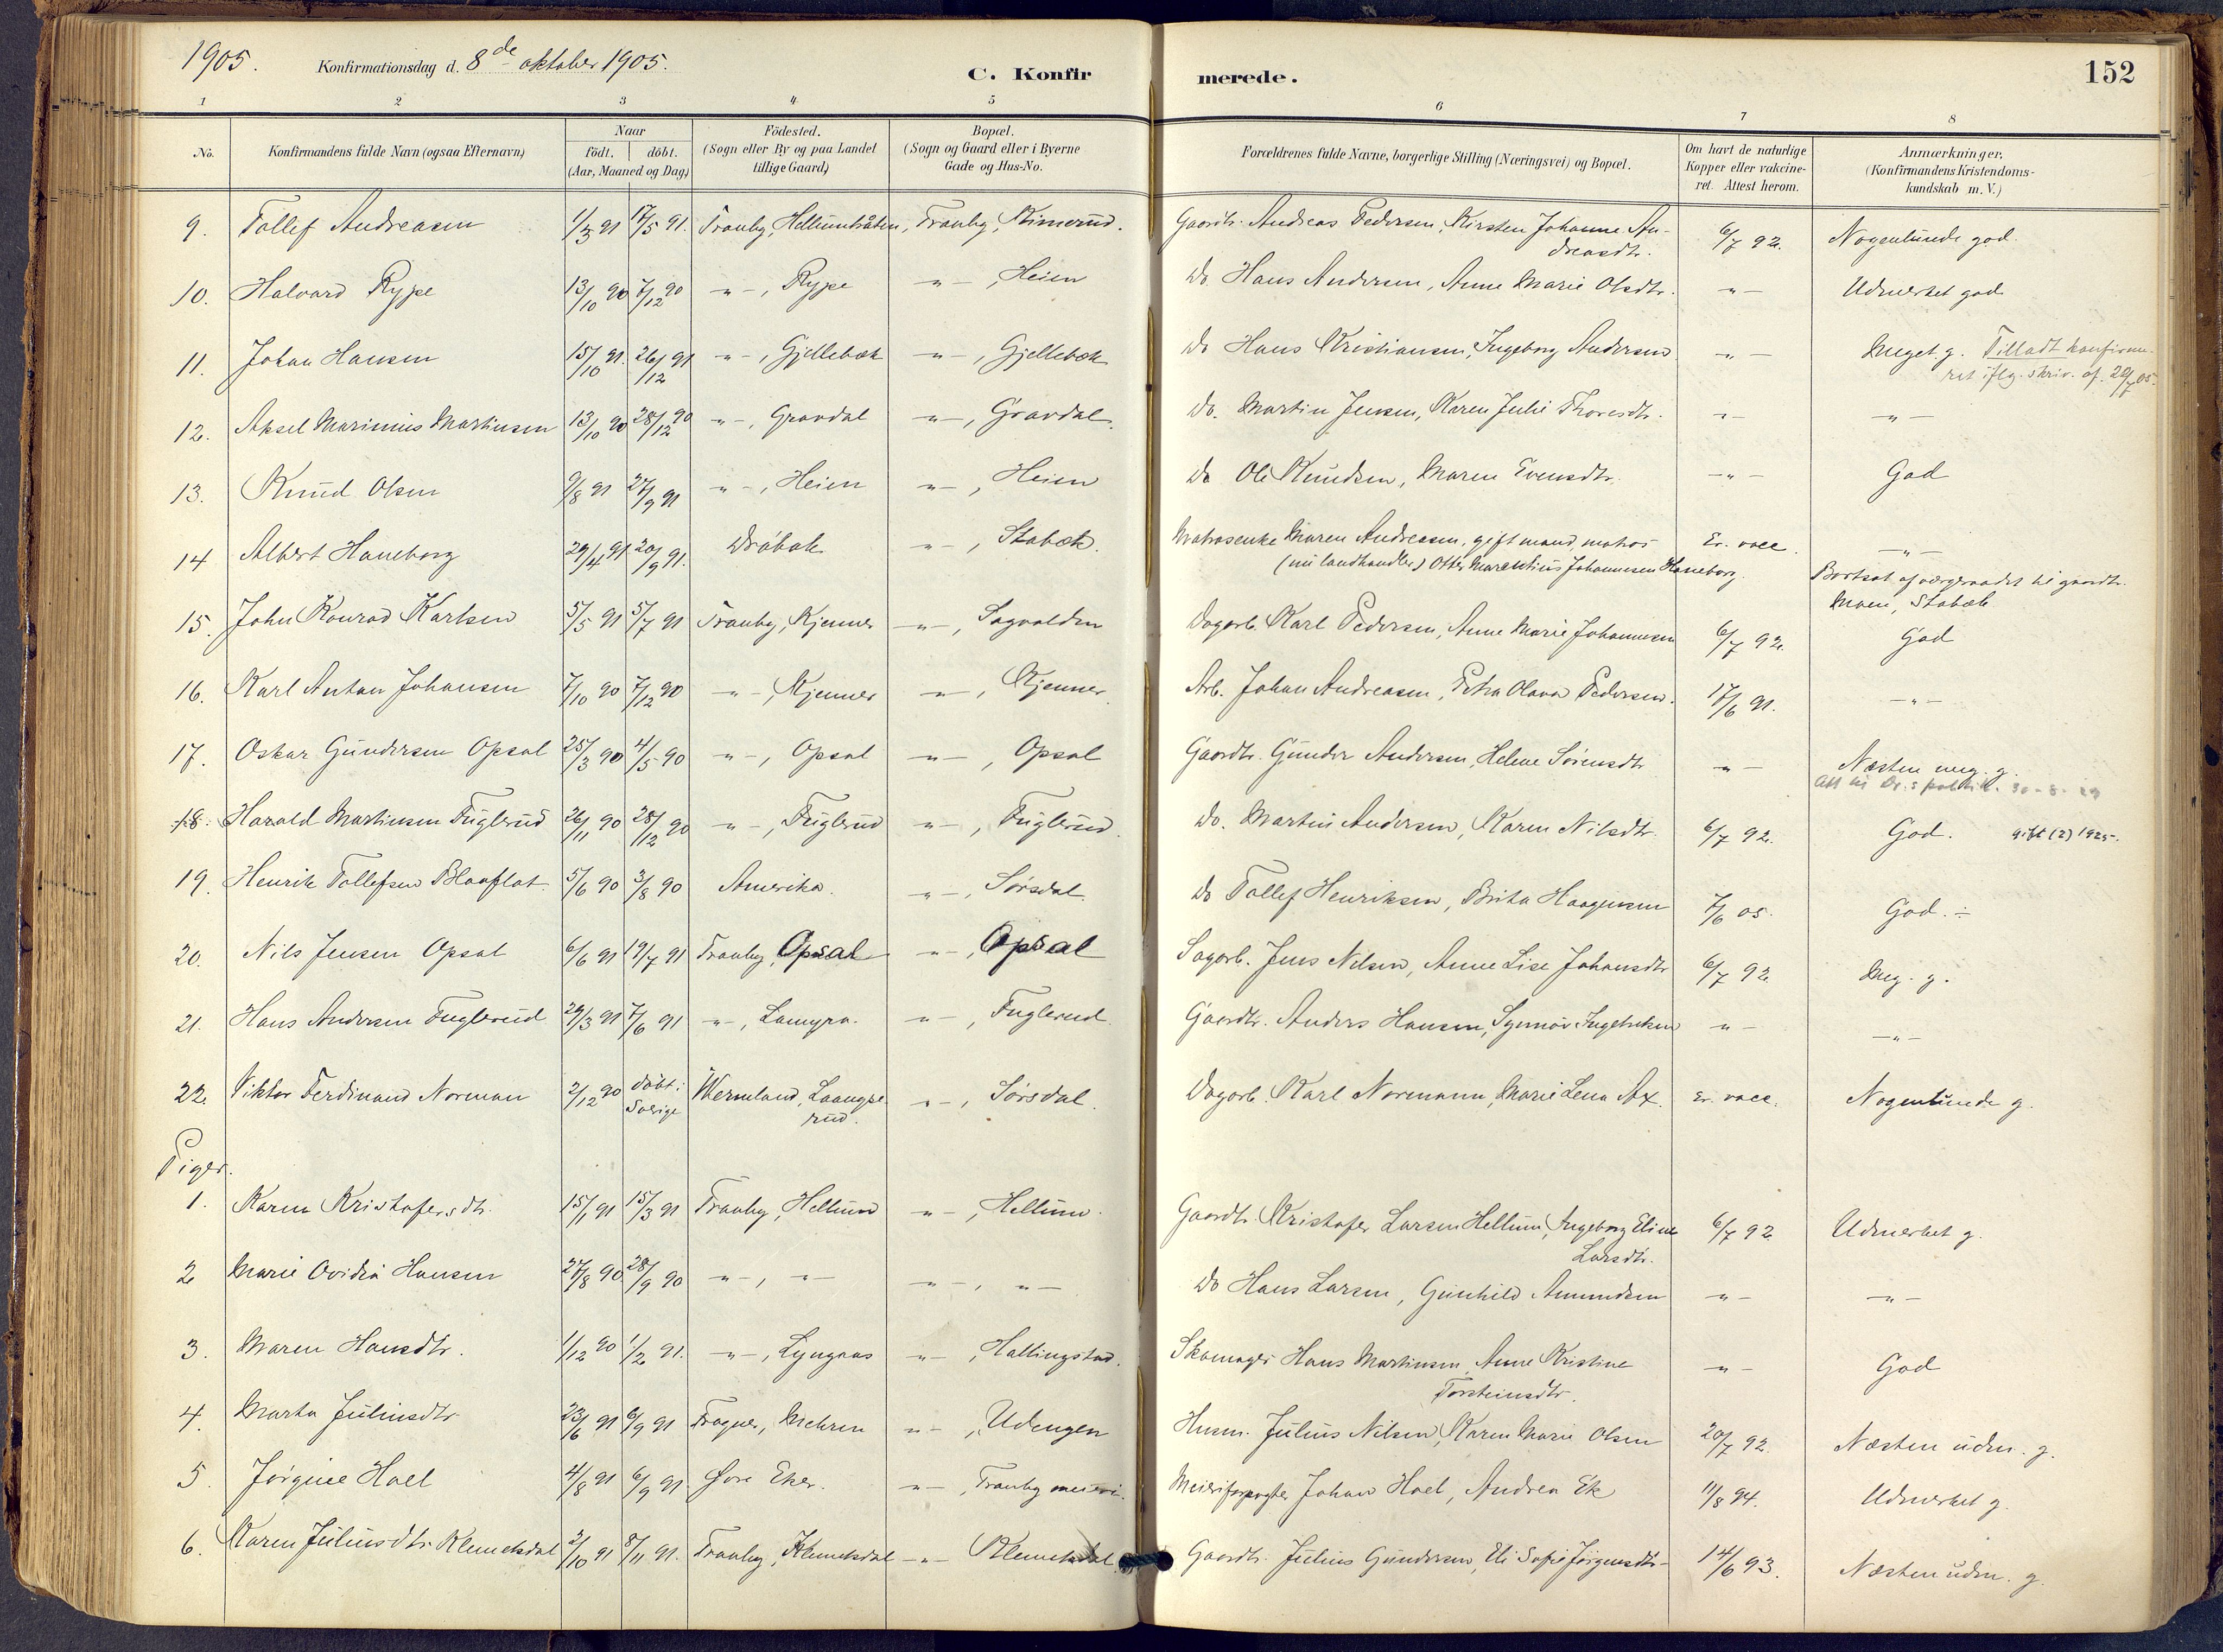 1905. Konfirmationsdag d. 8de oktober 1905. C. Konfirmerede. 152
1 2 3 4 5 6 7 8
No. Konfirmandens fulde Navn (ogsaa Efternavn) Naar födt. döbt. (Aar, Maaned og Dag) Födested. (Sogn eller By og paa Landet tillige Gaard) Bopæl. (Sogn og Gaard eller i Byerne Gade og Hus-No. Forældrenes fulde Navne, borgerlige Stilling (Næringsvei) og Bopæl. Om havt de naturlige Kopper eller vakcineret. Attest herom. Anmærkninger, (Konfirmandens Kristendomskundskab m. V.)
9. Tollef Andreasen 1/3 91 17/5 91. Tranby, , Tranby, Gaardbr. Andreas Pedersen, Kirsten Johanne Andreasdtr. 6/7 92. Nogenlunde god.
10. Halvard Rype 13/10 90 7/12 90 -"-, Rype -"-, Heien Do. Hans Andersen, Anne Marie Olsdtr. -"- Udmerket god
11. Johan Hansen 15/10 91. 26/12 91 -"-, Gjellebæk -"-, Gjellebæk Do Hans Kristiansen, Ingeborg Andersen -"- Meget g. Tilladt konfirmeret iflg. skriv. af 20/7 05.
12. Aksel Marinius Martinsen 13/10 90 28/12 90 -"-, Gravdal -"-, Gravdal. Do. Martin Jensen, Karen Julie Thoresdtr. -"- -"-
13. Knud Olsen 9/8 91 27/9 91 -"-, Heien -"-, Heien Do Ole Knudsen, Maren Evensdtr. -"- God
14 Albert Haneborg 29/4 91 20/9 91. Drøbak -"-, Stabæk. Matrosenke Maren Andreasen, gift mand, matros Er. vacc. -"-
(nu landhandler) Otter Johannesen Haneborg. Bortsat af vergeraadet til gaardbr. Moen, Stabæk
15. John Konrad Karlsen 5/5 91 5/7 91 Tranby, Kjenner -"-, Sagvolden Dagarb. Karl Pedersen, Anne Marie Johannesen 6/7 92. God
16. Karl Anton Johansen 7/10 90 7/12 90 -"-, Kjenner -"-, Kjenner. Arb. Johan Andreasen, Petra Olava Pedersen. 17/6 91. -"-
17. Oskar Gundersen Opsal 25/3 90 4/5 90 -"-, Opsal -"-, Opsal Gaardbr. Gunder Andersen, Helene Sørensdtr. -"- Næsten meg. g.
18. Harald Martinsen Fuglerud 26/11 90 28/12 90 -"-, Fuglerud -"-, Fuglerud. Do. Martin Andersen, Karen Nilsdtr. 6/7 92. God. gift (2) 1925.
19. Henrik Tollefsen Blaaflat 5/6 90 3/8 90 Amerika. -"-, Sørsdal. Do Tollef Henriksen, Brita Haagensen 7/6 05. God. ÷
20. Nils Jensen Opsal 6/6 91 19/7 91 Tranby, Opsal -"-, Opsal Sagarb. Jens Nilsen, Anne Lise Johansdtr 6/7 92. Meg. g.
21. Hans Andersen Fuglerud 29/3 91 7/6 91 -"-, Lamyra. -"-, Fuglerud. Gaardbr. Anders Hansen, Synnøv Ingebretsen -"- -"-
22. Viktor Ferdinand Norman 2/12 90 døbt i Sverige Wermland, -"-, Sørsdal. Dagarb. Karl Normann, Marie Lena Ax. Er. vacc. Nogenlunde g.
Piger.
1. Karen Kristofersdtr. 15/1 91 15/3 91 Tranby, Hellum -"-, Hellum. Gaardbr. Kristofer Larsen Hellum, Ingeborg Eline Larsdtr. 6/7 92 Udmerket g.
2 Marie Ovidia Hansen 27/8 90. 28/9 90 -"-, -"- -"-, -"- Do Hans Larsen, Gunhild Amundsen -"- -"-
3. Maren Hansdtr. 1/12 90 1/2 91. -"-, Lyngaas -"-, Hallingstad. Skomager Hans Martinsen, Anne Kristine Torsteinsdtr. -"- God
4. Marta Juliusdtr. 23/6 91 6/9 91 Frogner, Mehren -"-, Udengen Husm. Julius Nilsen, Karen Marie Olsen 20/7 92. Næsten udm. g.
5. Jørgine Hoel 4/8 91 6/9 91. Øvre Eker. -"-, Tranby meieri. Meieriforpagter Johan Hoel, Andrea Ek 11/8 94. Udmerket g.
6. Karen Juliusdtr. Klemetsdal 2/10 91 8/11 91. Tranby, Klemetsdal -"- Klemetsdal Gaardbr. Julius Gundersen, Eli Sofie Jørgensdtr. 14/6 93. Næsten udm. g.